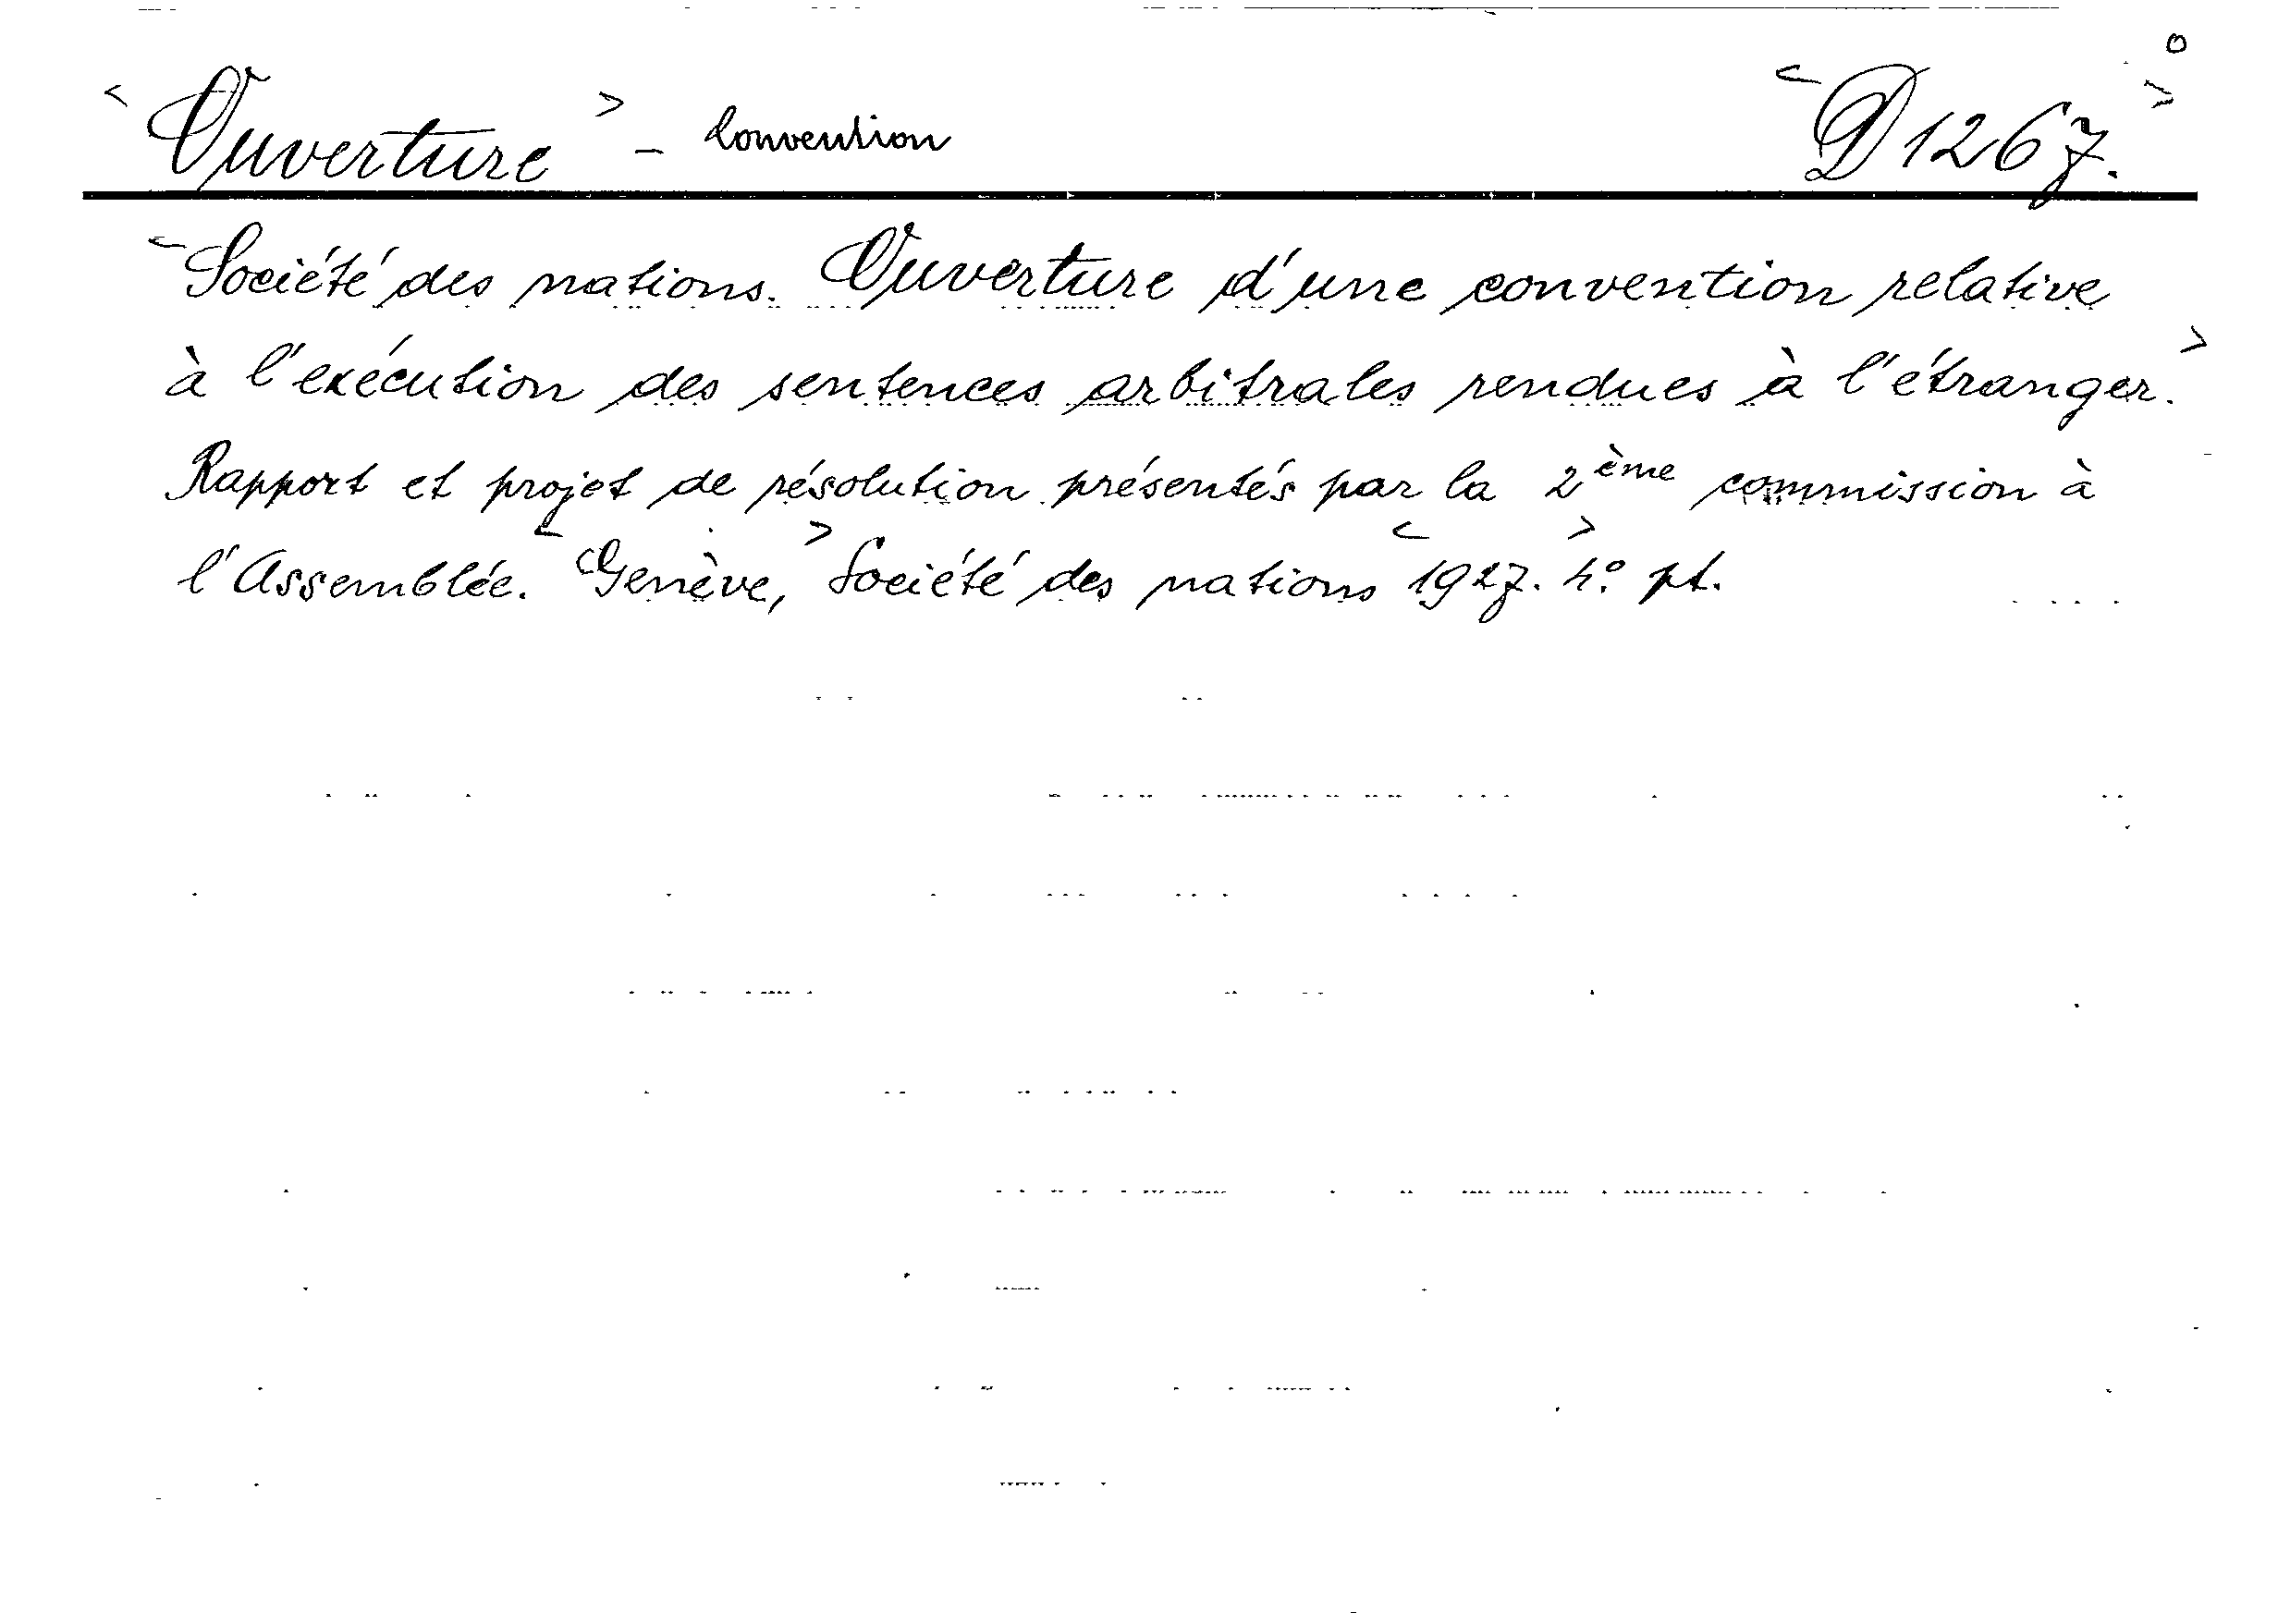 < Ouverture > - Convention < D 1267. > o
< Société des nations. Ouverture d'une convention relative
à l'exécution des sentences arbitrales rendues à l'étranger. >
Rapport et projet de résolution présentés par la 2ème commission à
l'Assemblée. < Genève, > Société des nations < 1927. > 4° pt.